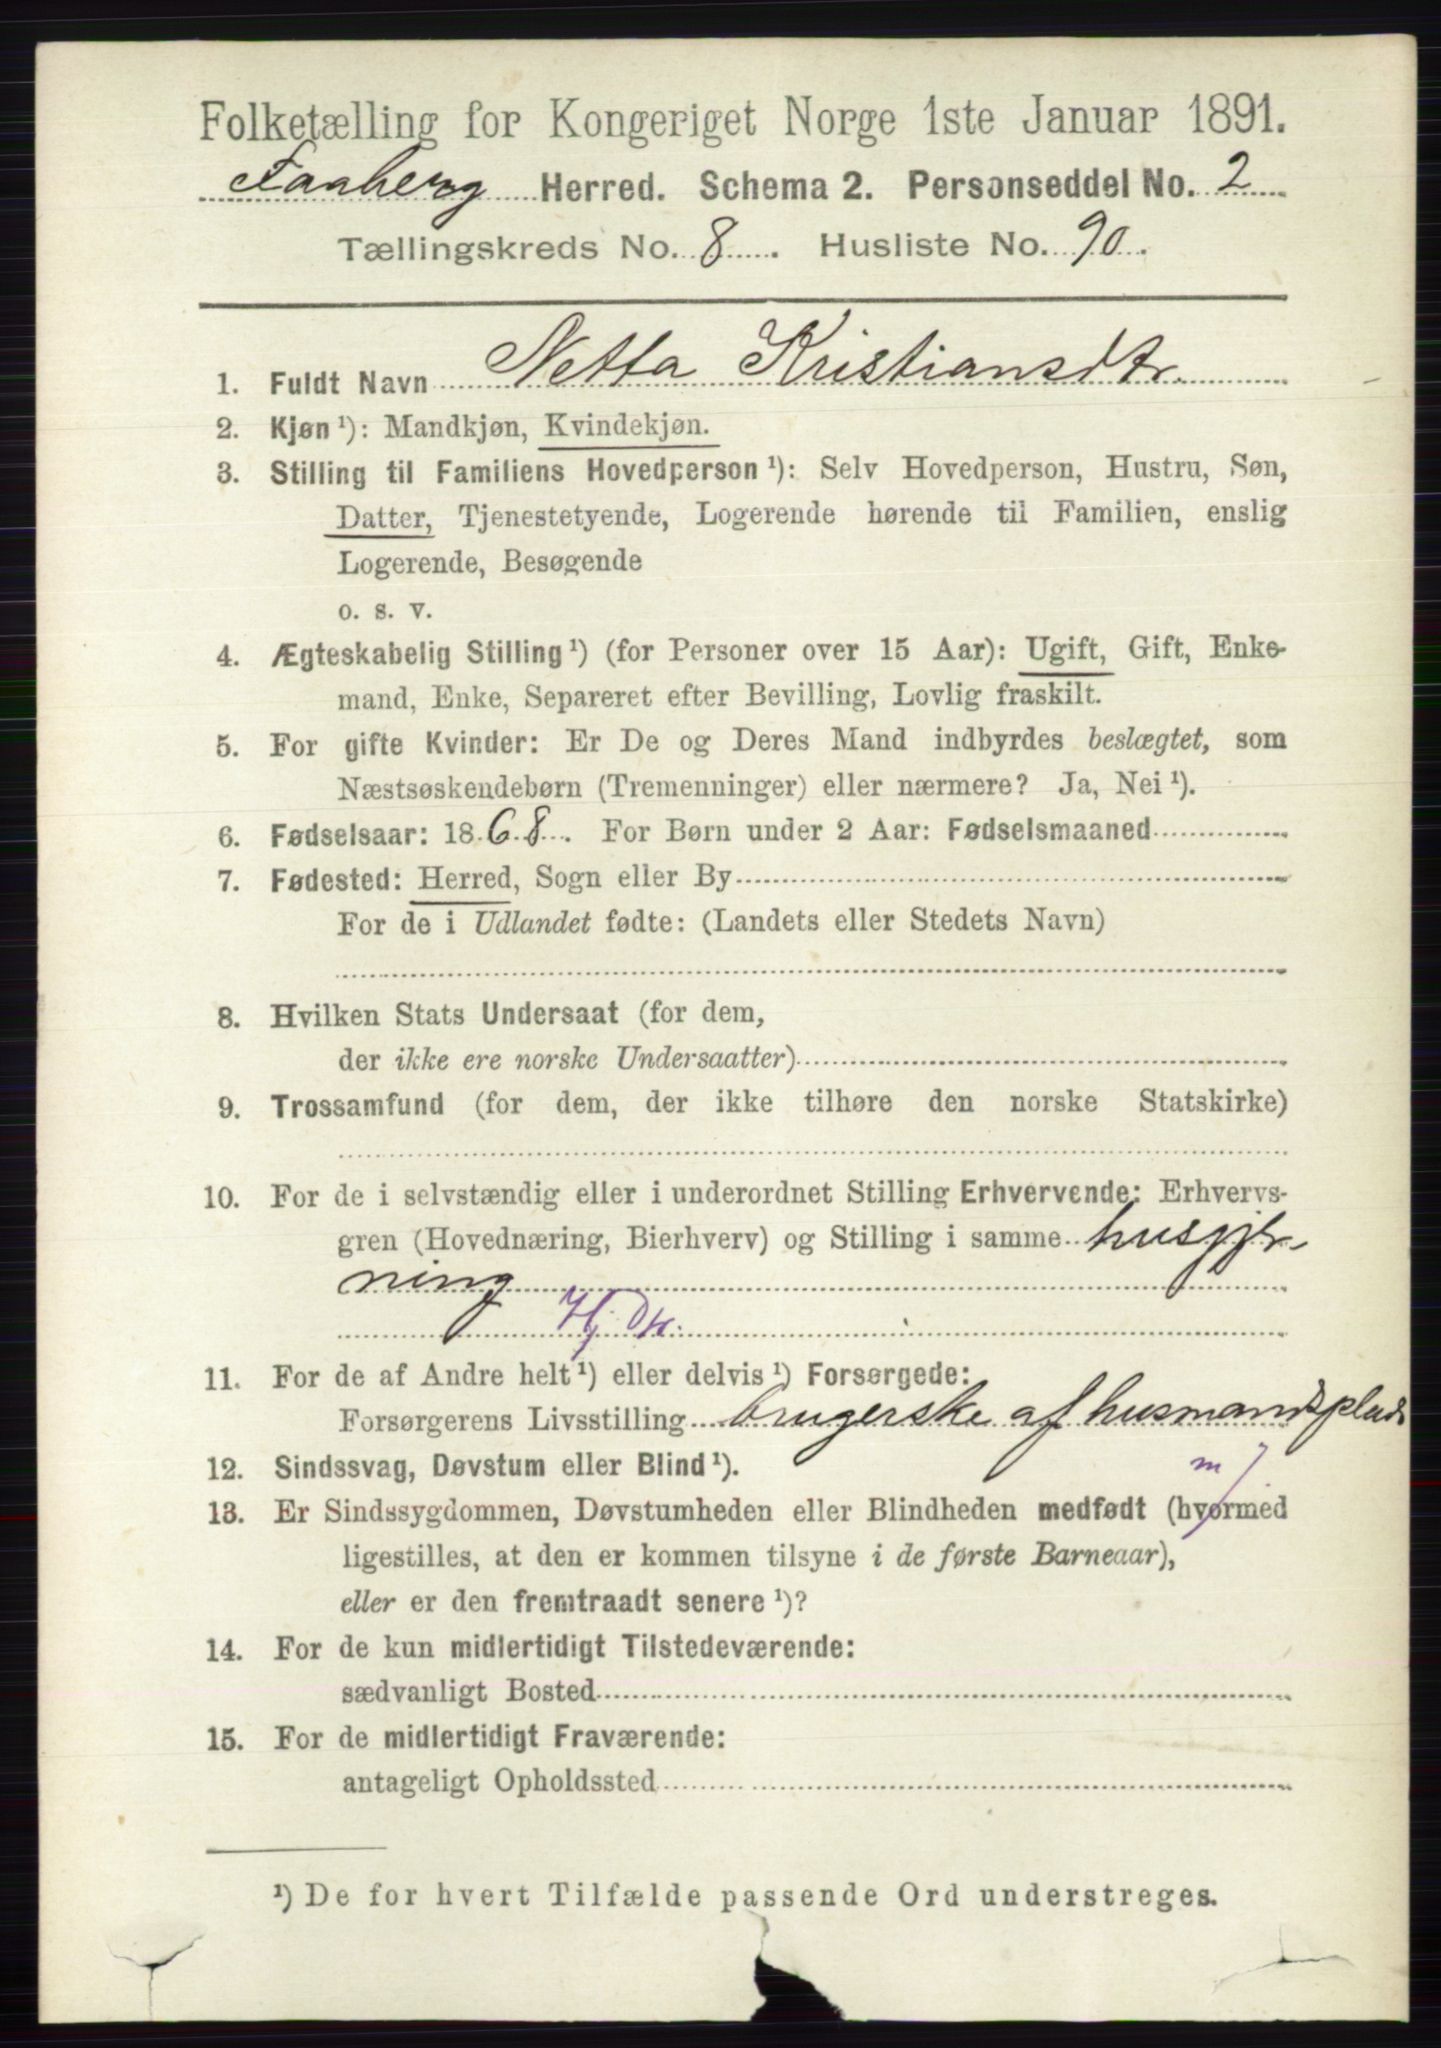 Folketælling for Kongeriget Norge 1ste Januar 1891.
Faaberg Herred. Schema 2. Personseddel No. 2
Tællingskreds No. 8. Husliste No. 90.
1. Fuldt Navn Netta Kristiansdtr.
2. Kjøn ¹): Mandkjøn, Kvindekjøn.
3. Stilling til Familiens Hovedperson ¹): Selv Hovedperson, Hustru, Søn,
Datter, Tjenestetyende, Logerende hørende til Familien, enslig
Logerende, Besøgende
o. s. v.
4. Ægteskabelig Stilling ¹) (for Personer over 15 Aar): Ugift, Gift, Enke-
mand, Enke, Separeret efter Bevilling, Lovlig fraskilt.
5. For gifte Kvinder: Er De og Deres Mand indbyrdes beslægtet, som
Næstsøskendebørn (Tremenninger) eller nærmere? Ja, Nei ¹).
6. Fødselsaar: 1868. For Børn under 2 Aar: Fødselsmaaned
7. Fødested: Herred, Sogn eller By
For de i Udlandet fødte: (Landets eller Stedets Navn)
8. Hvilken Stats Undersaat (for dem,
der ikke ere norske Undersaatter)
9. Trossamfund (for dem, der ikke tilhøre den norske Statskirke)
10. For de i selvstændig eller i underordnet Stilling Erhvervende: Erhvervs-
gren (Hovednæring, Bierhverv) og Stilling i samme husgjer-
ning
Hj. Dtr.
11. For de af Andre helt ¹) eller delvis ¹) Forsørgede:
Forsørgerens Livsstilling brugerske af husmandsplads
12. Sindssvag, Døvstum eller Blind ¹).
m
13. Er Sindssygdommen, Døvstumheden eller Blindheden medfødt (hvormed
ligestilles, at den er kommen tilsyne i de første Barneaar),
eller er den fremtraadt senere ¹)?
14. For de kun midlertidigt Tilstedeværende:
sædvanligt Bosted
15. For de midlertidigt Fraværende:
antageligt Opholdssted
¹) De for hvert Tilfælde passende Ord understreges.